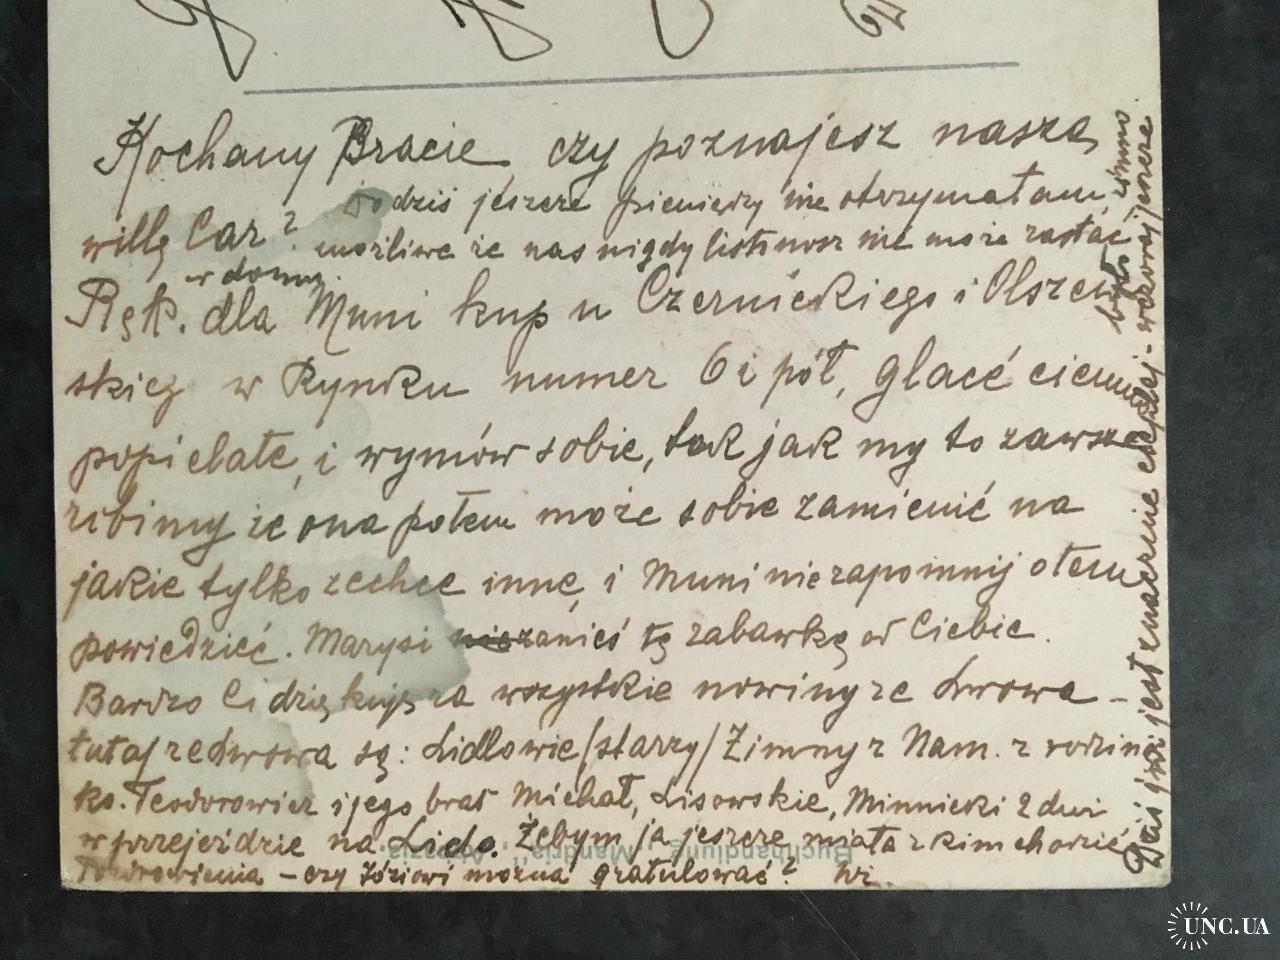 Kochany Bracie, czy poznajesz naszą
willę Car? dziś jeszcze pieniędzy nie otrzymałam,
możliwe że nas nigdy listonosz nie może zastać
w domu.
Ręk. dla Muni kup u Czernickiego i Olszew
skieg w Rynku numer 6 i pół, glacé ciemno
popielate, i wymów sobie, tak jak my to zawsze
robimy że ona potem może sobie zamienić na
jakie tylko zechce inne, i Muni nie zapomnij o tem
powiedzieć. Marysi zanieś tę zabawkę od Ciebie.
Bardzo Ci dziękuję za wszystkie nowiny ze Lwowa –
tutaj ze Lwowa są: Lidlowie /starzy/ Zimny z Nam. z rodziną
ks. Teodorowicz i jego brat Michał, Lisowskie, Minnicki 2 dni
w przejeździe na Lido. Żebym ja jeszcze miała z kim chodzić
Pozdrowienia – czy Józiowi można gratulować?
Dziś już jest znacznie cieplej – wczoraj jeszcze
było zimno.
Buchhandlung "Mandria", Abbazia.
UNC.UA